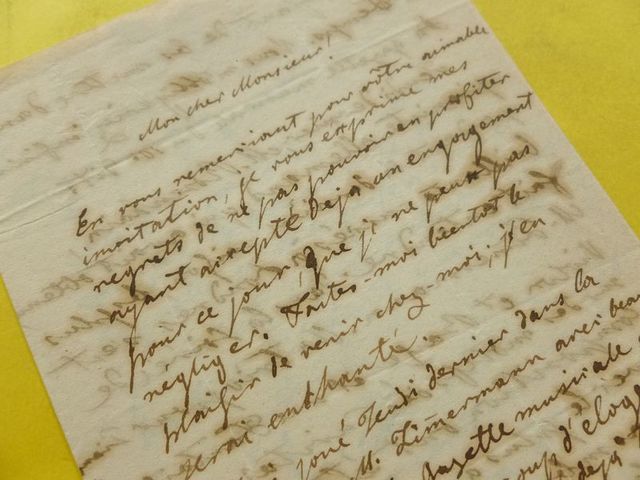 Mon cher Monsieur!
En vous remerciant pour vôtre aimable
invitation, je vous exprime mes
regrets de ne pas pouvoir en profiter
ayant accepté dejà un engagement
pour ce jour, que je ne peux pas
négliger. Faites-moi bientôt le
plaisir de venir chez-moi, j'en
serai enchanté.
joué Jeudi dernier dans la
M. Zimermann avec beau
Gazette musicale
coup d'elog
dejà